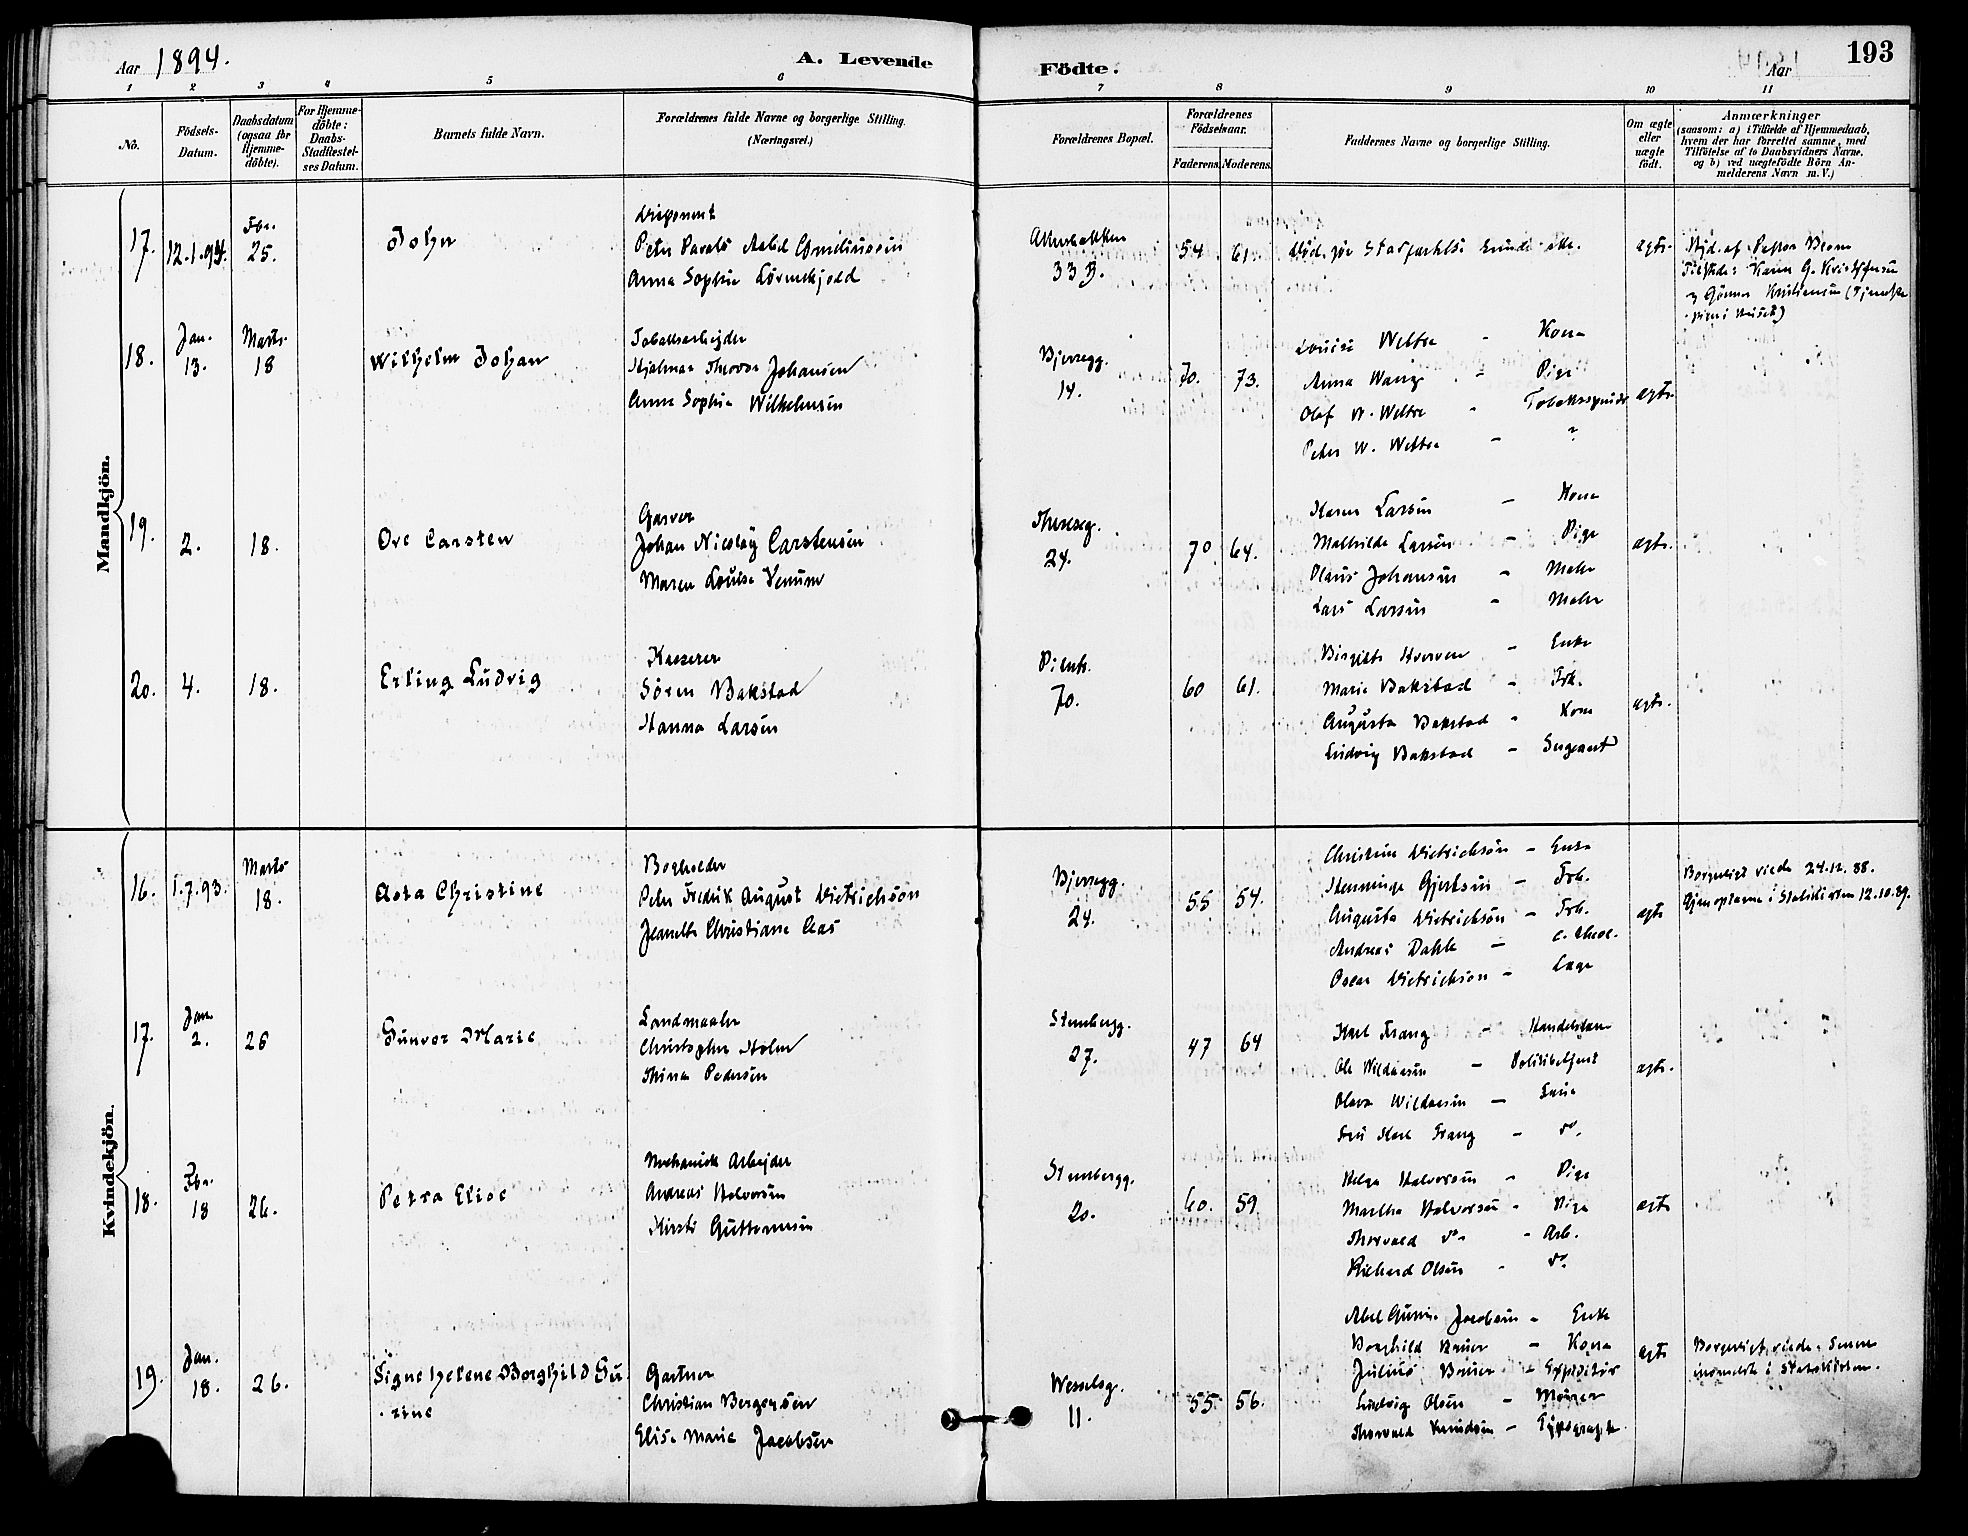 Aar 1894.
A. Levende Födte.
Aar
193
1 2 3 4 5 6 7 8 9 10 11
No.
Födsels-Datum.
Daabsdatum (ogsaa for Hjemme-döbte).
For Hjemme-döbte: Daabs-Stadfæstel-ses Datum.
Barnets fulde Navn.
Forældrenes fulde Navne og borgerlige Stilling. (Næringsvei.)
Forældrenes Bopæl.
Forældrenes Födselsaar.
Faderens. Moderens.
Faddernes Navne og borgerlige Stilling.
Om ægte eller uægte födt.
Anmærkninger (saasom: a) i Tilfælde af Hjemmedaab, hvem der har forrettet samme, med Tilföielse af to Daabsvidners Navne, og b) ved uægtefödte Börn An-melderens Navn m. V.)
Mandkjön.
17. 12.1.94. Fbr. 25. John
Disponent
Anna Sophie
33 B. 54 61. ægte.
18. Jan. 13. Marts 18 Wilhelm Johan
Tobaksarbejder
Hjalmar Theodor Johansen
Anna Sophie Wilhelmsen
Bjerregg. 14. 70. 73. ægte.
Louise Weltre - Kone
Anna Wang - Pige
Olaf W. Weltre - Tobaksspinder
Peter W. Weltre - ?
19. 2. 18. Ove Carsten
Garver
Johan Nicolay Carstensen
Maren Louise Venum
Theresesg. 24. 70 64. ægte.
Karen Larsen - Kone
Mathilde Larsen - Pige
Olaus Johansen - Maler
Lars Larsen - Maler
20. 4. 18. Erling Ludvig
Kasserer
Sören Bakstad
Hanna Larsen
Pilestr. 70. 60 61. ægte.
Birgitte - Enke
Marie Bakstad - Frk.
Augusta Bakstad - Kone
Ludvig Bakstad - Sergeant
Kvindekjön.
16. 1.7.93. Marts 18. Asta Christine
Bogholder
Peter Fredrik August Dietrichson
Jeanette Christiane Aas
Bjerregg. 24. 55 54. ægte
Christine Dietrichson - Enke
Henninge Gjertsen - Frk.
Augusta Dietrichson - Frk.
Andreas Dahle - c. theol.
Oscar Dietrichson - Læge
Borgerligt viede 24.12.88.
Gjenoptagne i Statskirken 12.10.89.
17. Jan. 2. 26 Gunvor Marie
Landmaaler
Christopher Holm
Thina Pedersen
Stensbergg. 27. 47 64 ægte.
Karl Frang - Handelsmand
Ole Wildaasen - Politibetjent
Olava Wildaasen - Frue
Fru Karl Frang - do.
18. Fbr. 18 26. Petra Elise
Mechanisk Arbejder
Andreas Halvorsen
Kirsti Guttormsen
Stensbergg. 20. 60. 59. ægte
Helga Halvorsen - Pige
Martha Halvorsen - Pige
Thorvald do - Arb.
Richard Olsen - do.
19. Jan. 18. 26. Signe Helene Borghild Gu-
rine
Gartner
Christian Bergersen
Elise Marie Jacobsen
Wesselsg. 11. 55. 56. ægte
Abel Gurine Jacobsen - Enke
Borghild Bruer - Kone
Julius Bruer - Expeditör
Ludvig Olsen - Murer
Thorvald Knudsen - Typograph
Borgerligt viede. Senere
indmeldt i Statskirken.